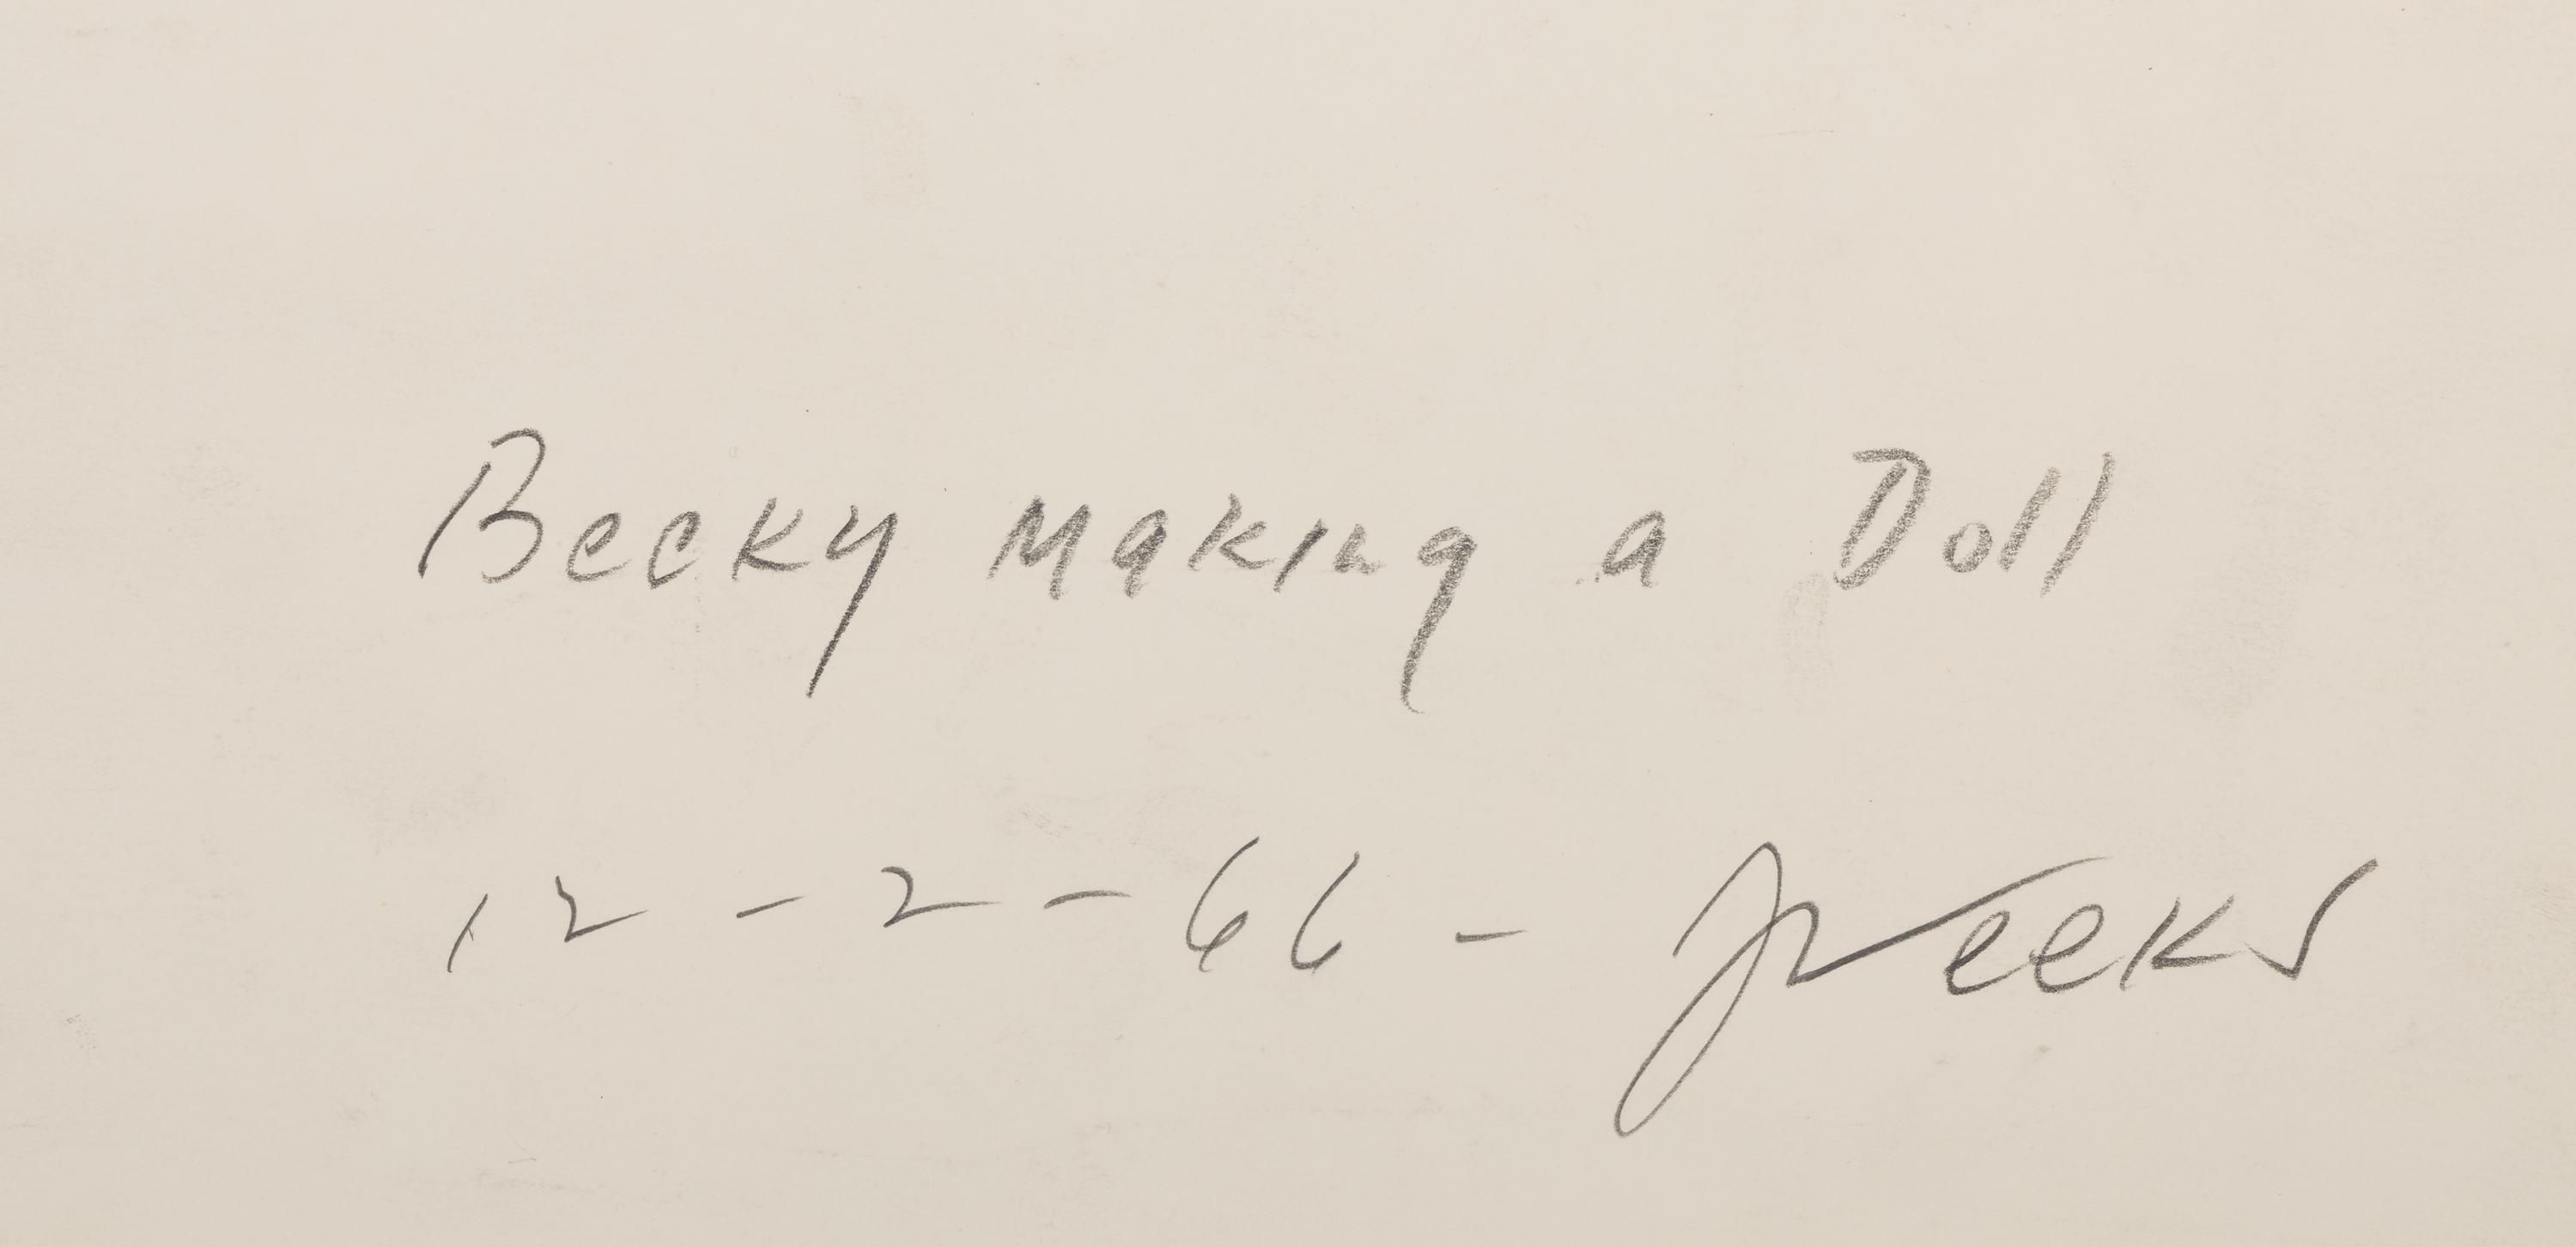 Becky Making a Doll
12 - 2 - 66 - JWeeks